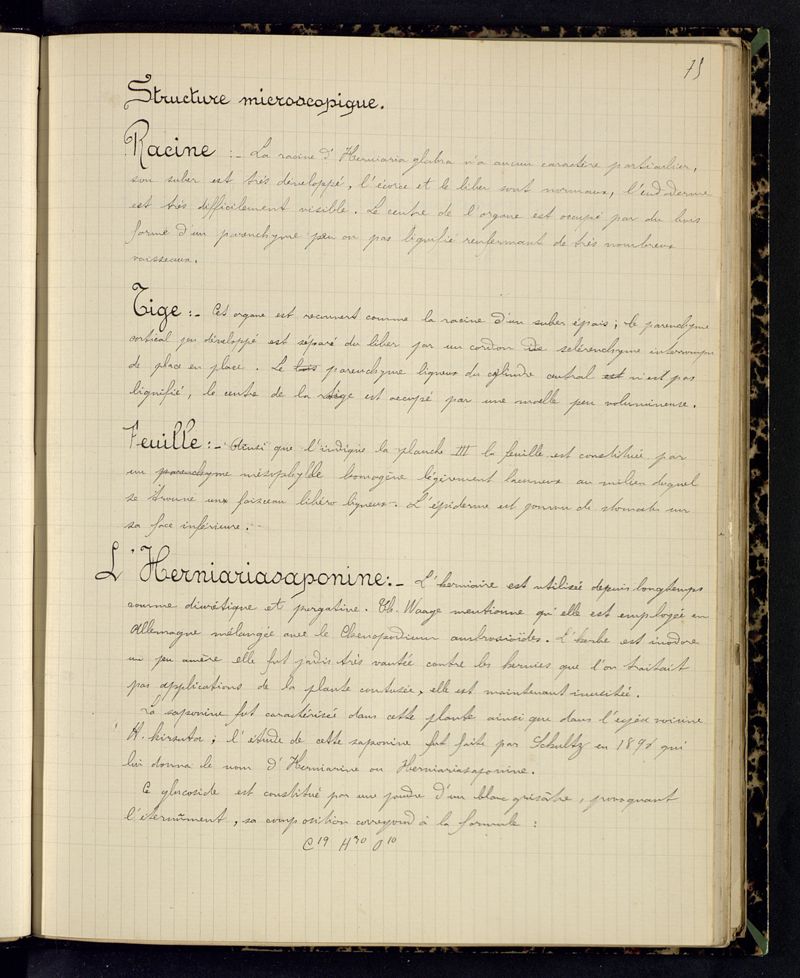 75
Structure microscopique.
Racine :- La racine d'Herniaria glabra n'a aucun caractère particulier,
son suber est très développé, l'écorce et le liber sont normaux, l'endoderme
est très difficilement visible. Le centre de l'organe est occupé par du bois
formé d'un parenchyme peu ou pas lignifié renfermant de très nombreux
vaisseaux.
Tige :- Cet organe est recouvert comme la racine d'un suber épais ; le parenchyme
cortical peu développé est séparé du liber par un cordon de sclérenchyme interrompu
de place en place. Le bois parenchyme ligneux du cylindre central est n'est pas
lignifié, le centre de la tige est occupé par une moelle peu volumineuse.
Feuille :- Ainsi que l'indique la planche III la feuille est constituée par
un parenchyme mésophylle homogène légèrement lacuneux au milieu duquel
se trouve un faisceau libéro ligneux. L'épiderme est pourvu de stomates sur
sa face inférieure.-
L'Herniariasaponine:- L'herniaire est utilisée depuis longtemps
comme diurétique et purgative. Th. Waage mentionne qu'elle est employée en
Allemagne mélangée avec le Chenopodium ambrosioides. L'herbe est inodore
un peu amère elle fut jadis très vantée contre les hernies que l'on traitait
pas applications de la plante contusée, elle est maintenant inusitée.
La saponine fut caractérisée dans cette plante ainsi que dans l'espèce voisine
H. hirsuta ; l'étude de cette saponine fut faite par Schultz en 1896 qui
lui donna le nom d'Herniarine ou Herniariasaponine.
Ce glucoside est constitué par une poudre d'un blanc grisâtre, provoquant
l'éternument, sa composition correspond à la formule :
C19 H30 O10